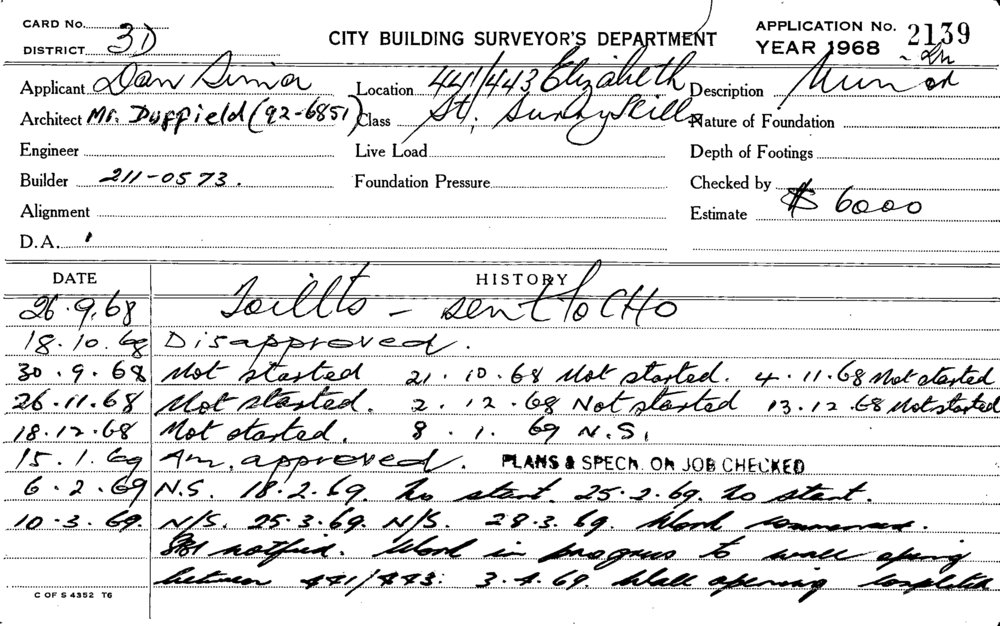 CARD No. APPLICATION No. 2139
DISTRICT 3D CITY BUILDING SURVEYOR'S DEPARTMENT YEAR 1968
Applicant Dan Location 441/443 Elizabeth Description
Architect Mr. Duffield (92-6851) Class St. Surry Hills Nature of Foundation
Engineer Live Load Depth of Footings
Builder 211-0573. Foundation Pressure Checked by
Alignment Estimate $ 6000
D.A.
DATE HISTORY
26.9.68 - sent to CHO
18.10.68 Disapproved.
30.9.68 Not started 21.10.68 Not started. 4.11.68 Not started
26.11.68 Not started. 2.12.68 Not started 13.12.68 Not started
18.12.68 Not started. 8.1.69 N.S.
15.1.69 Am. approved. PLANS & SPECN. ON JOB CHECKED
6.2.69 N.S. 18.2.69. No start. 25.2.69. No start.
10.3.69. N/S. 25.3.69. N/S. 28.3.69. Work commenced.
notified. Work in progress to wall opening
between 441/443: 3.4.69. Wall opening completed
C OF S 4352 T6